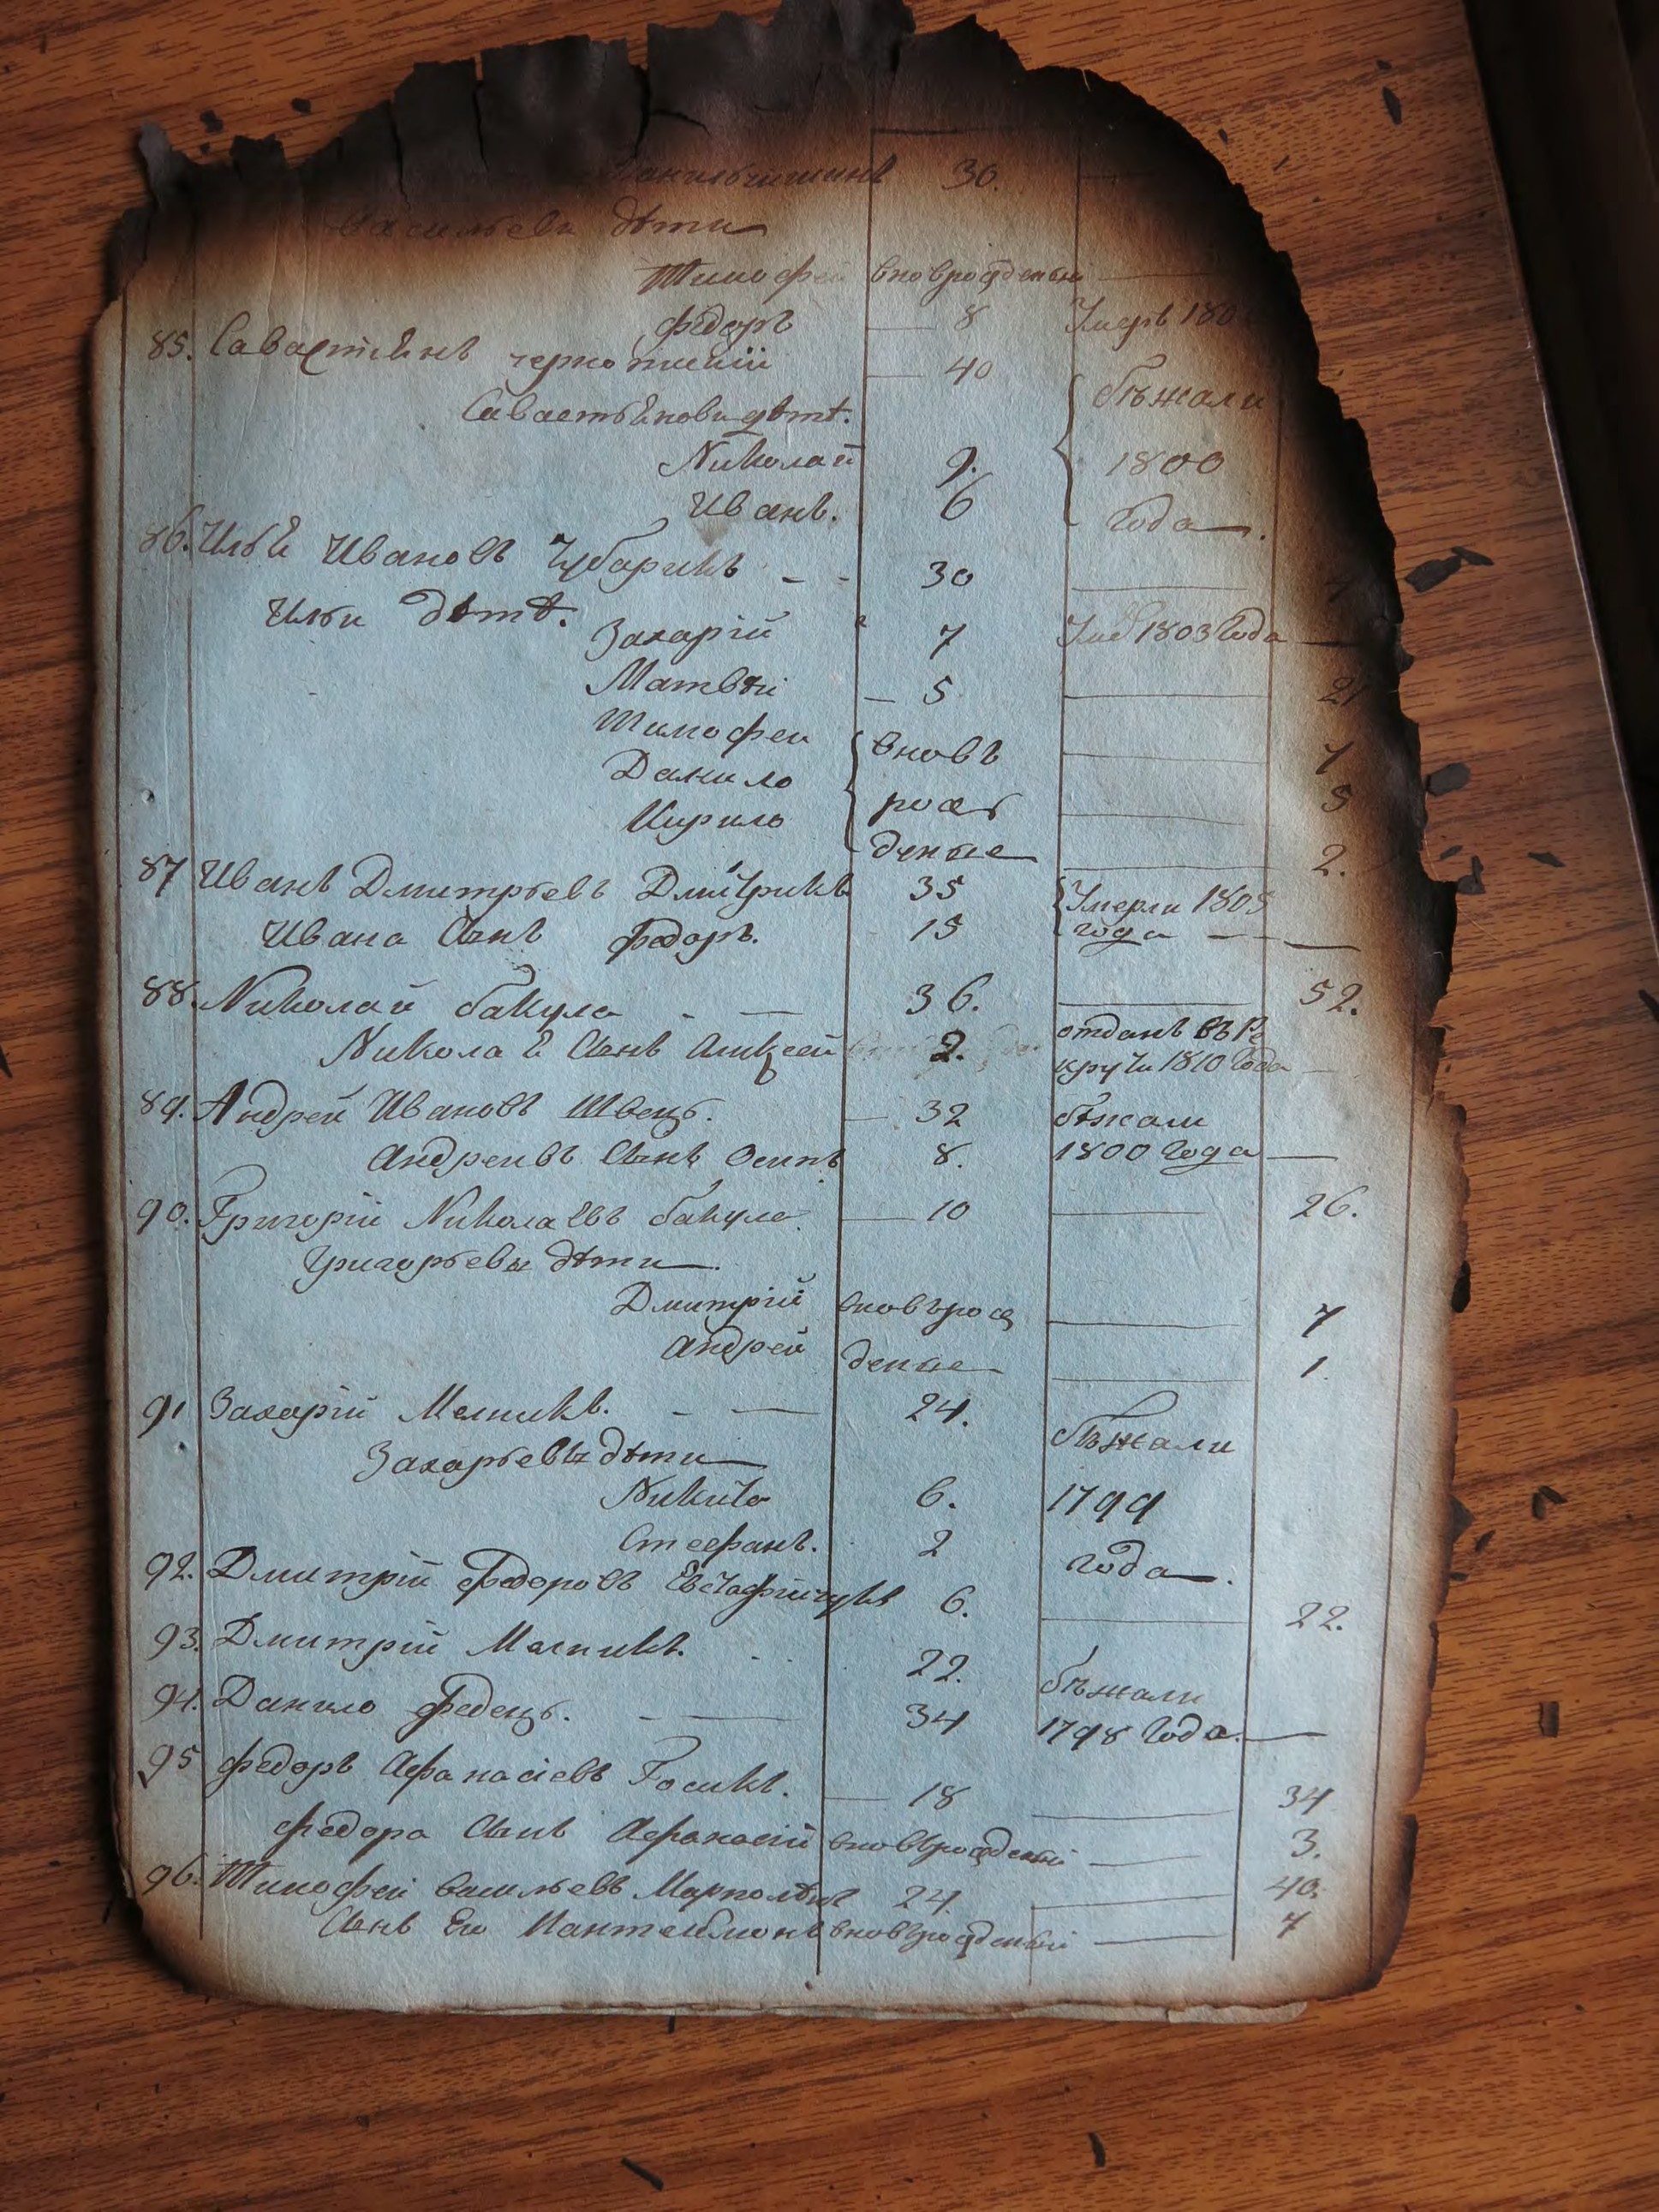 30.
Васильеви дѣти
Тимофей вновьрожденый —
Федоръ — 8 Умеръ 180
85. Савастіянъ чернопискій — 40
Савастьянови дѣтѣ. бѣжали
Николай 9. 1800
Иванъ. 6 года.
86. Илья Ивановъ Чубарикъ - - 30 —
Ильи дѣтѣ.
Захарій 7 Умер 1803 года —
Матвѣй — 5 — 21
Тимофеи вновь — 7
Данило рож — 5
Кирило деные — 2.
87 Иванъ Дмитрьевъ Дмитрикъ 35 Умерли 1805
Ивана сынъ Федоръ. 15 года — —
88. Николай бакула - — 36. — 52.
Никола я сынъ Аликсей 2. отданъ въ Ре
круты 1810 года —
89. Андрей Ивановъ Швецъ. — 32 бѣжали
Андреивъ сынъ Осипъ 8. 1800 года —
90. Григорій Николаевъ бакула — 10 — 26.
Григорьевы дѣти.
Дмитрій вновьрож — 7
Андрей деные — 1.
91 Захарій Мелникъ. - — 24. бѣжали
Захарьевы дѣти
Никита 6. 1799
Стефанъ. 2 года.
92. Дмитрій Федоровъ Евстафійчукъ 6. — 22.
93. Дмитрій Мелникъ. . . 22. бѣжали
94. Данило Федецъ. - — 34 1798 года. —
95 Федоръ Афанасіевъ Госикъ. — 18 — 34
Федора сынъ Афанасій вновьрожденый — 3.
96. Тимофей васильевъ 24. — 40.
Сынъ Его Пантелимонъ вновьрожденый — 7